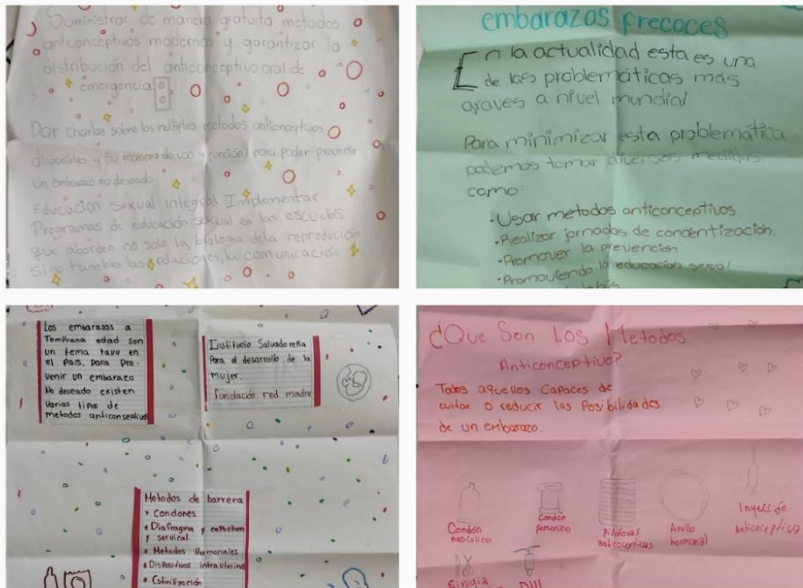 Suministrar de manera gratuita metodos
anticonceptivos modernos y garantizar la
distribución del anticonceptivo oral de
emergencia
Dar charlas sobre los multiples metodos anticonceptivos
disponibles y su manera de uso y función para poder prevenir
un embarazo no deseado
Educación sexual integral Implementar
Programas de educación sexual en las escuelas
que aborden no solo la biologia de la reproducción
sino tambien las relaciones, la comunicación
embarazos precoces
En la actualidad esta es una
de las problemáticas más
graves a nivel mundial
Para minimizar esta problematica
podemos tomar diversas medidas
como
• Usar métodos anticonceptivos.
• Realizar jornadas de concientización
• Promover la prevención
• Promoviendo la educación sexual
Los embarazos a
Temprana edad son
un tema tavu en
el Pais, para Pre-
venir un embarazo
No deseado existen
varios tipos de
metodos anticonseptivos
Instituto Salvadoreña
Para el desarrollo de la
mujer.
Fundación red madre
Metodos de barrera
• Condones
• Diafragma y
y servical.
• Metodos Hormonales
• Dispositivos intrauterino
•
¿Que Son Los Metodos
Anticonceptivo?
Todos aquellos Capaces de
evitar o reducir las Posibilidades
de un embarazo.
Condón
masculico
Condón
femenino
Pildoras
anticonceptivas
Anillo
hormonal
Inyección
Anticonceptiva
Sirugia
DIU